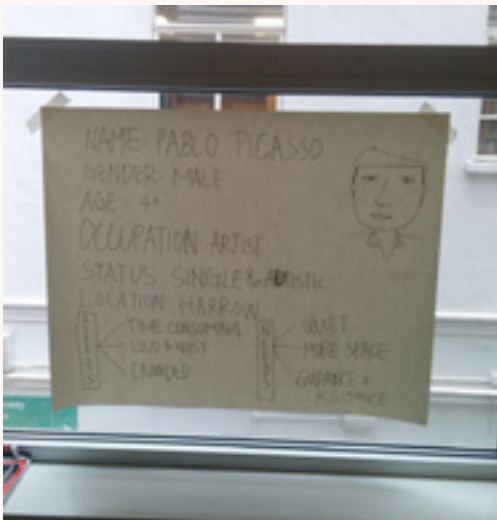 NAME: PABLO PICASSO
GENDER: MALE
AGE: 40
OCCUPATION: ARTIST
STATUS: SINGLE & AUTISTIC
LOCATION: HARROW
TIME CONSUMING
LOUD & NOISY
CROWDED
QUIET
MORE SPACE
GUIDANCE &
ASSISTANCE